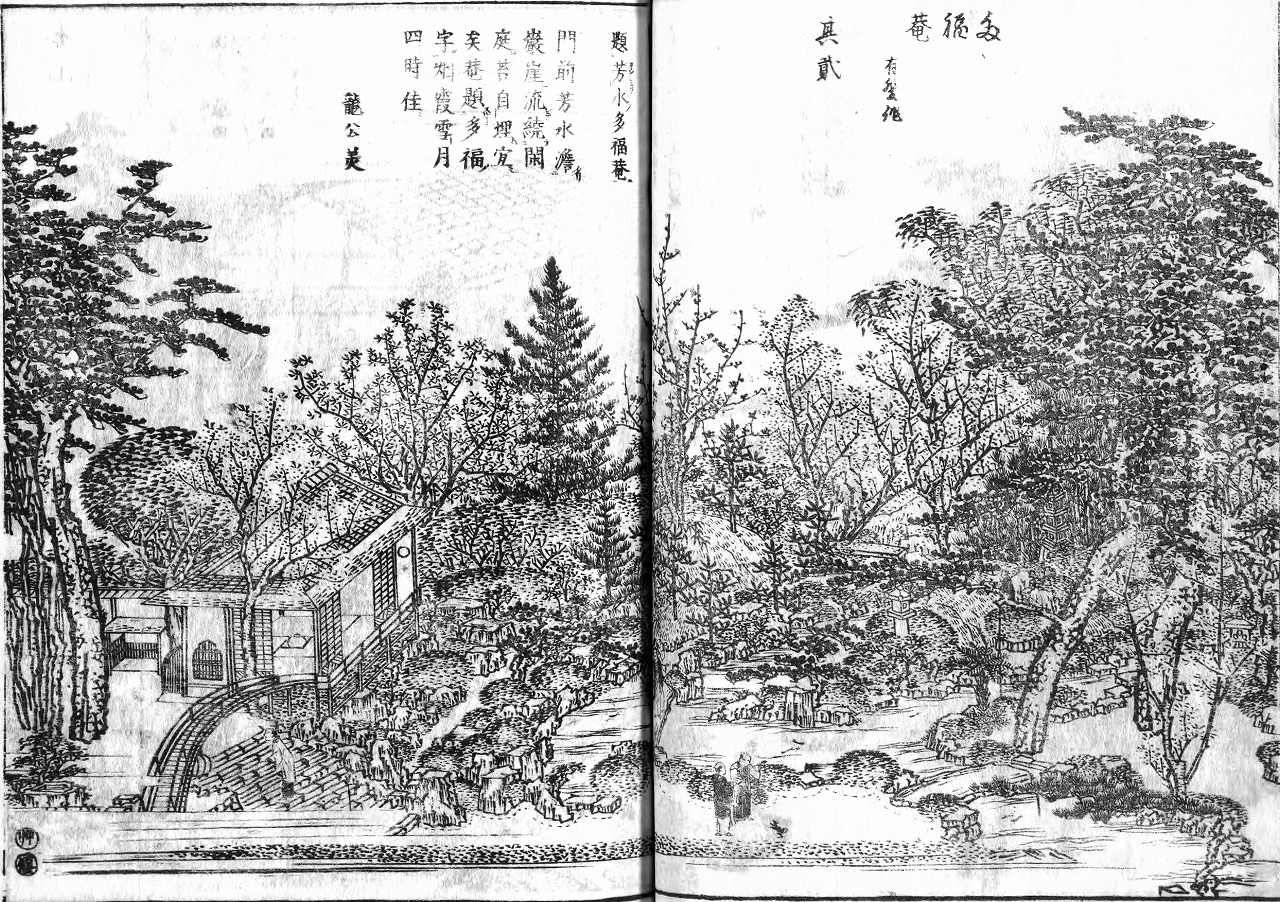 多福菴
其貳
題芳水多福菴
門前芳水澹
巖崖流繞閑
庭苔自埋宜
矣菴題多福
字烟霞雪月
四時佳
龍公美